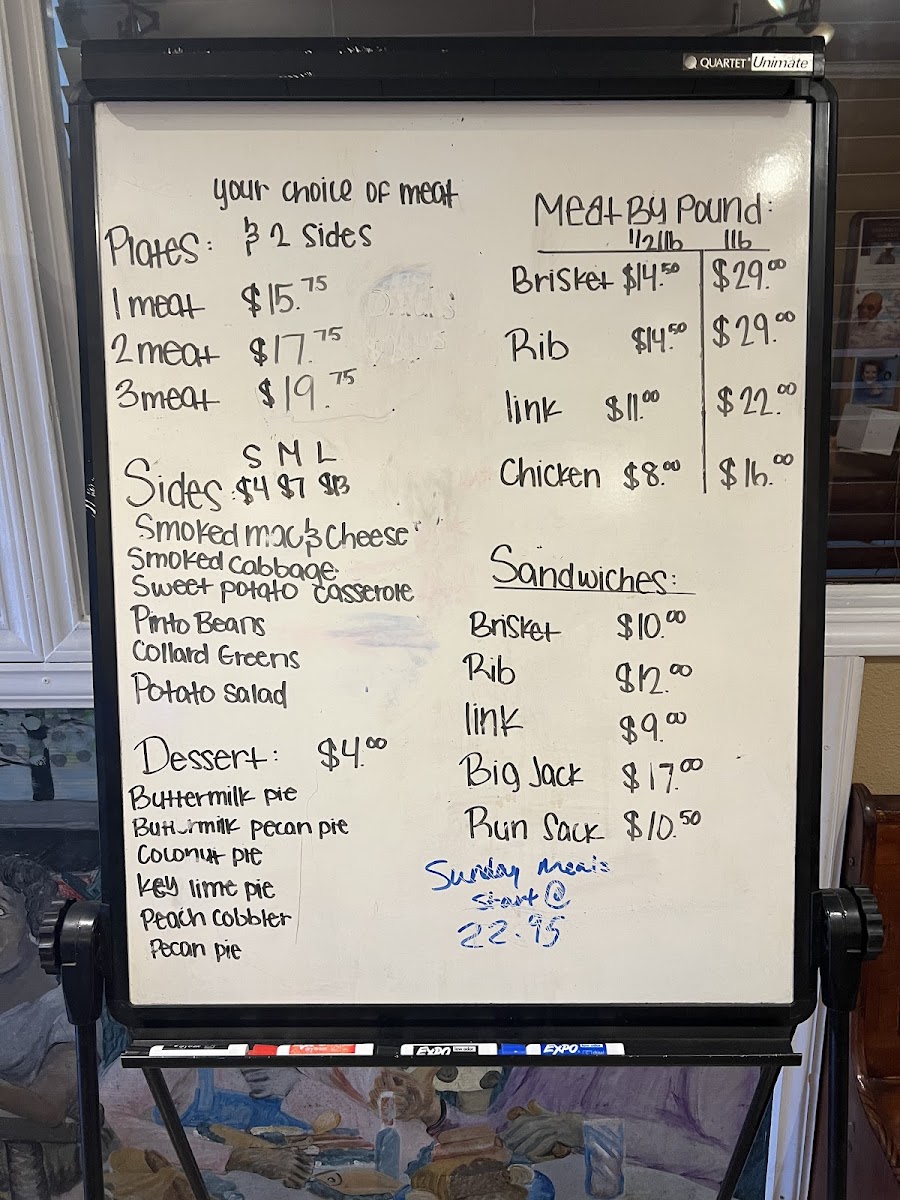 QUARTET Unimate
your choice of meat
Plates: & 2 sides
1 meat $15.75
2 meat $17.75
3 meat $19.75
S M L
Sides: $4 $7 $13
Smoked mac & Cheese
Smoked cabbage
Sweet potato casserole
Pinto Beans
Collard Greens
Potato salad
Dessert: $4.00
Buttermilk pie
Buttermilk pecan pie
Coconut pie
key lime pie
Peach Cobbler
Pecan pie
Meat By Pound:
1/2 lb 1 lb
Brisket $14.50 $29.00
Rib $14.50 $29.00
link $11.00 $22.00
Chicken $8.00 $16.00
Sandwiches:
Brisket $10.00
Rib $12.00
link $9.00
Big Jack $17.00
Run Sack $10.50
Sunday meals
start @
22.95
EXPO EXPO